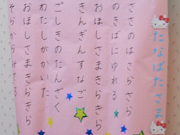 たなばたさま
ささのはさらさら
のきばにゆれる
おほしさまきらきら
きんぎんすなご
ごしきのたんざく
わたしがかいた
おほしさまきらきら